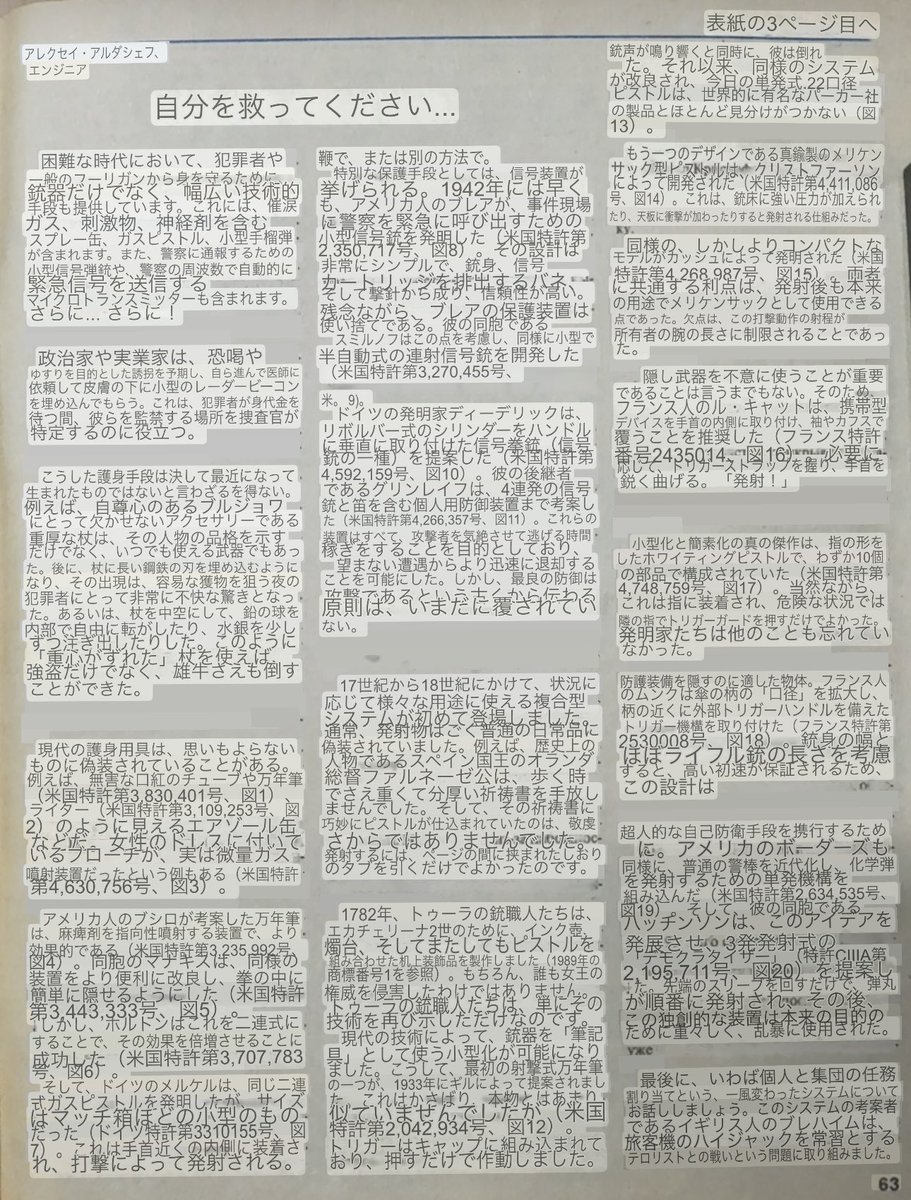 表紙の3ページ目へ
アレクセイ・アルダシェフ、
エンジニア
自分を救ってください...
困難な時代において、犯罪者や
一般のフーリガンから身を守るために、
銃器だけでなく、幅広い技術的
手段も提供しています。これには、催涙
ガス、刺激物、神経剤を含む
スプレー缶、ガスピストル、小型手榴弾
が含まれます。また、警察に通報するための
小型信号弾銃や、警察の周波数で自動的に
緊急信号を送信する
マイクロトランスミッターも含まれます。
さらに... さらに！
政治家や実業家は、恐喝や
ゆすりを目的とした誘拐を予期し、自ら進んで医師に
依頼して皮膚の下に小型のレーダービーコン
を埋め込んでもらう。これは、犯罪者が身代金を
待つ間、彼らを監禁する場所を捜査官が
特定するのに役立つ。
こうした護身手段は決して最近になって
生まれたものではないと言わざるを得ない。
例えば、自尊心のあるブルジョワ
にとって欠かせないアクセサリーである
重厚な杖は、その人物の品格を示す
だけでなく、いつでも使える武器でもあっ
た。後に、杖に長い鋼鉄の刃を埋め込むように
なり、その出現は、容易な獲物を狙う夜の
犯罪者にとって非常に不快な驚きとなっ
た。あるいは、杖を中空にして、鉛の球を
内部で自由に転がしたり、水銀を少し
ずつ注ぎ出したりした。このように
「重心がずれた」杖を使えば、
強盗だけでなく、雄牛さえも倒す
ことができた。
現代の護身用具は、思いもよらない
ものに偽装されていることがある。
例えば、無害な口紅のチューブや万年筆
（米国特許第3,830,401号、図1）、
ライター（米国特許第3,109,253号、図
2）のように見えるエアゾール缶
などだ。女性のドレスに付いて
いるブローチが、実は微量ガス
噴射装置だったという例もある（米国特許
第4,630,756号、図3）。
アメリカ人のブシロが考案した万年筆
は、麻痺剤を指向性噴射する装置で、より
効果的である（米国特許第3,235,992号、
図4）。同胞のマナキスは、同様の
装置をより便利に改良し、拳の中に
簡単に隠せるようにした（米国特許
第3,443,333号、図5）。
しかし、ホルトンはこれを二連式に
することで、その効果を倍増させることに
成功した（米国特許第3,707,783
号、図6）。
そして、ドイツのメルケルは、同じ二連
式ガスピストルを発明したが、サイズ
はマッチ箱ほどの小型のもの
だった（ドイツ特許第3310155号、図
7）。これは手首近くの内側に装着さ
れ、打撃によって発射される。
鞭で、または別の方法で。
特別な保護手段としては、信号装置が
挙げられる。1942年には早く
も、アメリカ人のブレアが、事件現場
に警察を緊急に呼び出すための
小型信号銃を発明した（米国特許第
2,350,717号、図8）。その設計は
非常にシンプルで、銃身、信号
カートリッジを排出するバネ、
そして撃針から成り、信頼性が高い。
残念ながら、ブレアの保護装置は
使い捨てである。彼の同胞である
スミルノフはこの点を考慮し、同様に小型で
半自動式の連射信号銃を開発した
（米国特許第3,270,455号、
米。9）。
ドイツの発明家ディーデリックは、
リボルバー式のシリンダーをハンドル
に垂直に取り付けた信号拳銃（信号
銃の一種）を提案した（米国特許第
4,592,159号、図10）。彼の後継者
であるグリンレイフは、4連発の信号
銃と笛を含む個人用防御装置まで考案し
た（米国特許第4,266,357号、図11）。これらの
装置はすべて、攻撃者を気絶させて逃げる時間
稼ぎをすることを目的としており、
望まない遭遇からより迅速に退却する
ことを可能にした。しかし、最良の防御は
攻撃であるという古くから伝わる
原則は、いまだに覆されてい
ない。
17世紀から18世紀にかけて、状況に
応じて様々な用途に使える複合型
システムが初めて登場しました。
通常、発射物はごく普通の日常品に
偽装されていました。例えば、歴史上の
人物であるスペイン国王のオランダ
総督ファルネーゼ公は、歩く時
でさえ重くて分厚い祈祷書を手放し
ませんでした。そして、その祈祷書に
巧妙にピストルが仕込まれていたのは、敬虔
さからではありませんでした。
発射するには、ページの間に挟まれたしおり
のタブを引くだけでよかったのです。
1782年、トゥーラの銃職人たちは、
エカチェリーナ2世のために、インク壺、
燭台、そしてまたしてもピストルを
組み合わせた机上装飾品を製作しました（1989年の
商標番号1を参照）。もちろん、誰も女王の
権威を侵害したわけではありません。
トゥーラの銃職人たちは、単にその
技術を再び示しただけなのです。
現代の技術によって、銃器を「筆記
具」として使う小型化が可能になり
ました。こうして、最初の射撃式万年筆
の一つが、1933年にギルによって提案されまし
た。これはかさばり、本物とはあまり
似ていませんでしたが（米国
特許第2,042,934号、図12）。
トリガーはキャップに組み込まれて
おり、押すだけで作動しました。
銃声が鳴り響くと同時に、彼は倒れ
た。それ以来、同様のシステム
が改良され、今日の単発式.22口径
ピストルは、世界的に有名なパーカー社
の製品とほとんど見分けがつかない（図
13）。
もう一つのデザインである真鍮製のメリケン
サック型ピストルは、クリストファーソン
によって開発された（米国特許第4,411,086
号、図14）。これは、銃床に強い圧力が加えられ
たり、天板に衝撃が加わったりすると発射される仕組みだった。
ку.
同様の、しかしよりコンパクトな
モデルがカッシュによって発明された（米国
特許第4,268,987号、図15）。両者
に共通する利点は、発射後も本来
の用途でメリケンサックとして使用できる
点であった。欠点は、この打撃動作の射程が
所有者の腕の長さに制限されることであっ
た。
隠し武器を不意に使うことが重要
であることは言うまでもない。そのため、
フランス人のル・キャットは、携帯型
デバイスを手首の内側に取り付け、袖やカフスで
覆うことを推奨した（フランス特許
番号2435014、図16）。必要に
応じて、トリガーストラップを握り、手首を
鋭く曲げる。「発射！」
小型化と簡素化の真の傑作は、指の形を
したホワイティングピストルで、わずか10個
の部品で構成されていた（米国特許第
4,748,759号、図17）。当然ながら、
これは指に装着され、危険な状況では
隣の指でトリガーガードを押すだけでよかった。
発明家たちは他のことも忘れてい
なかった。
防護装備を隠すのに適した物体。フランス人
のムンクは傘の柄の「口径」を拡大し、
柄の近くに外部トリガーハンドルを備えた
トリガー機構を取り付けた（フランス特許第
2530008号、図18）。銃身の幅と
ほぼライフル銃の長さを考慮
すると、高い初速が保証されるため、
この設計は
超人的な自己防衛手段を携行するため
に。アメリカのボーダーズも
同様に、普通の警棒を近代化し、化学弾
を発射するための単発機構を
組み込んだ（米国特許第2,634,535号、
図19）。そして、彼の同胞である
ハッチンソンは、このアイデアを
発展させ、3発発射式の
「デモクラタイザー」（特許CIIIA第
2,195,711号、図20）を提案し
た。先端のスリーブを回すだけで、弾丸
が順番に発射され、その後、
この独創的な装置は本来の目的の
ために重々しく、乱暴に使用された。
уже
最後に、いわば個人と集団の任務
割り当てという、一風変わったシステムについて
お話ししましょう。このシステムの考案者
であるイギリス人のブレハイムは、
旅客機のハイジャックを常習とする
テロリストとの戦いという問題に取り組みました。
63